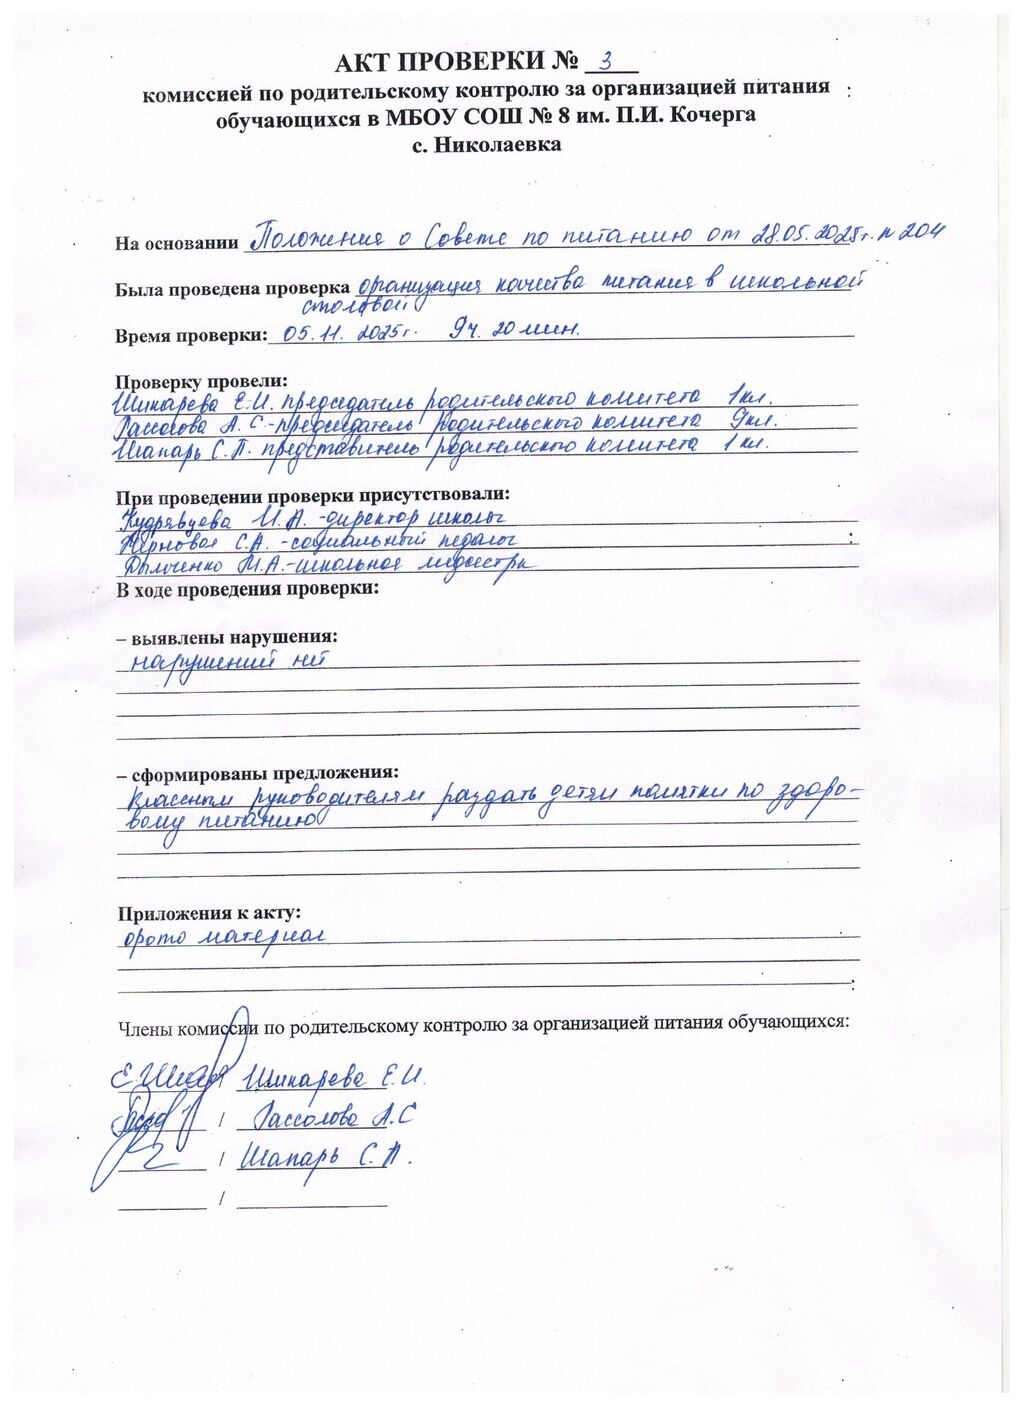 АКТ ПРОВЕРКИ № 3
комиссией по родительскому контролю за организацией питания
обучающихся в МБОУ СОШ № 8 им. П.И. Кочерга
с. Николаевка
На основании Положения о Совете по питанию от 28.05.2025г. № 204
Была проведена проверка организация качества питания в школьной
столовой
Время проверки: 05.11.2025г. 9ч. 20 мин.
Проверку провели:
Шинарева Е.И. председатель родительского комитета 1кл.
Рассолова А.С.-председатель родительского комитета 9кл.
Шапарь С.П. представитель родительского комитета 1 кл.
При проведении проверки присутствовали:
Кудрявцева И.А. -директор школы
С.А. -социальный педагог
М.А.-школьная медсестра
В ходе проведения проверки:
– выявлены нарушения:
нарушений нет
– сформированы предложения:
Классным руководителям раздать детям памятки по здоро-
вому питанию
Приложения к акту:
фото материал
Члены комиссии по родительскому контролю за организацией питания обучающихся:
/ Шинарева Е.И.
/ Рассолова А.С
/ Шапарь С.П.
/